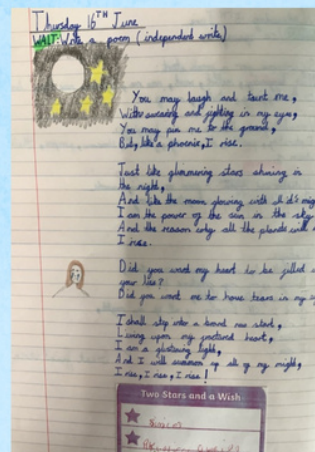 Thursday 16TH June
WALT: Write a poem (independent write)
You may laugh and taunt me,
With swearing and fighting in my eyes,
You may pin me to the ground,
But, like a phoenix, I rise.
Just like glimmering stars shining in
the night,
And like the moon glowing with all it's
I am the power of the sun in the sky
And the reason why all the planets
I rise.
Did you want my heart to be filled
your lies?
Did you want me to have tears in my
I shall step into a brand new start,
upon my heart,
I am a glistening light,
And I will summon up all of my might,
I rise, I rise, I rise!
Two Stars and a Wish